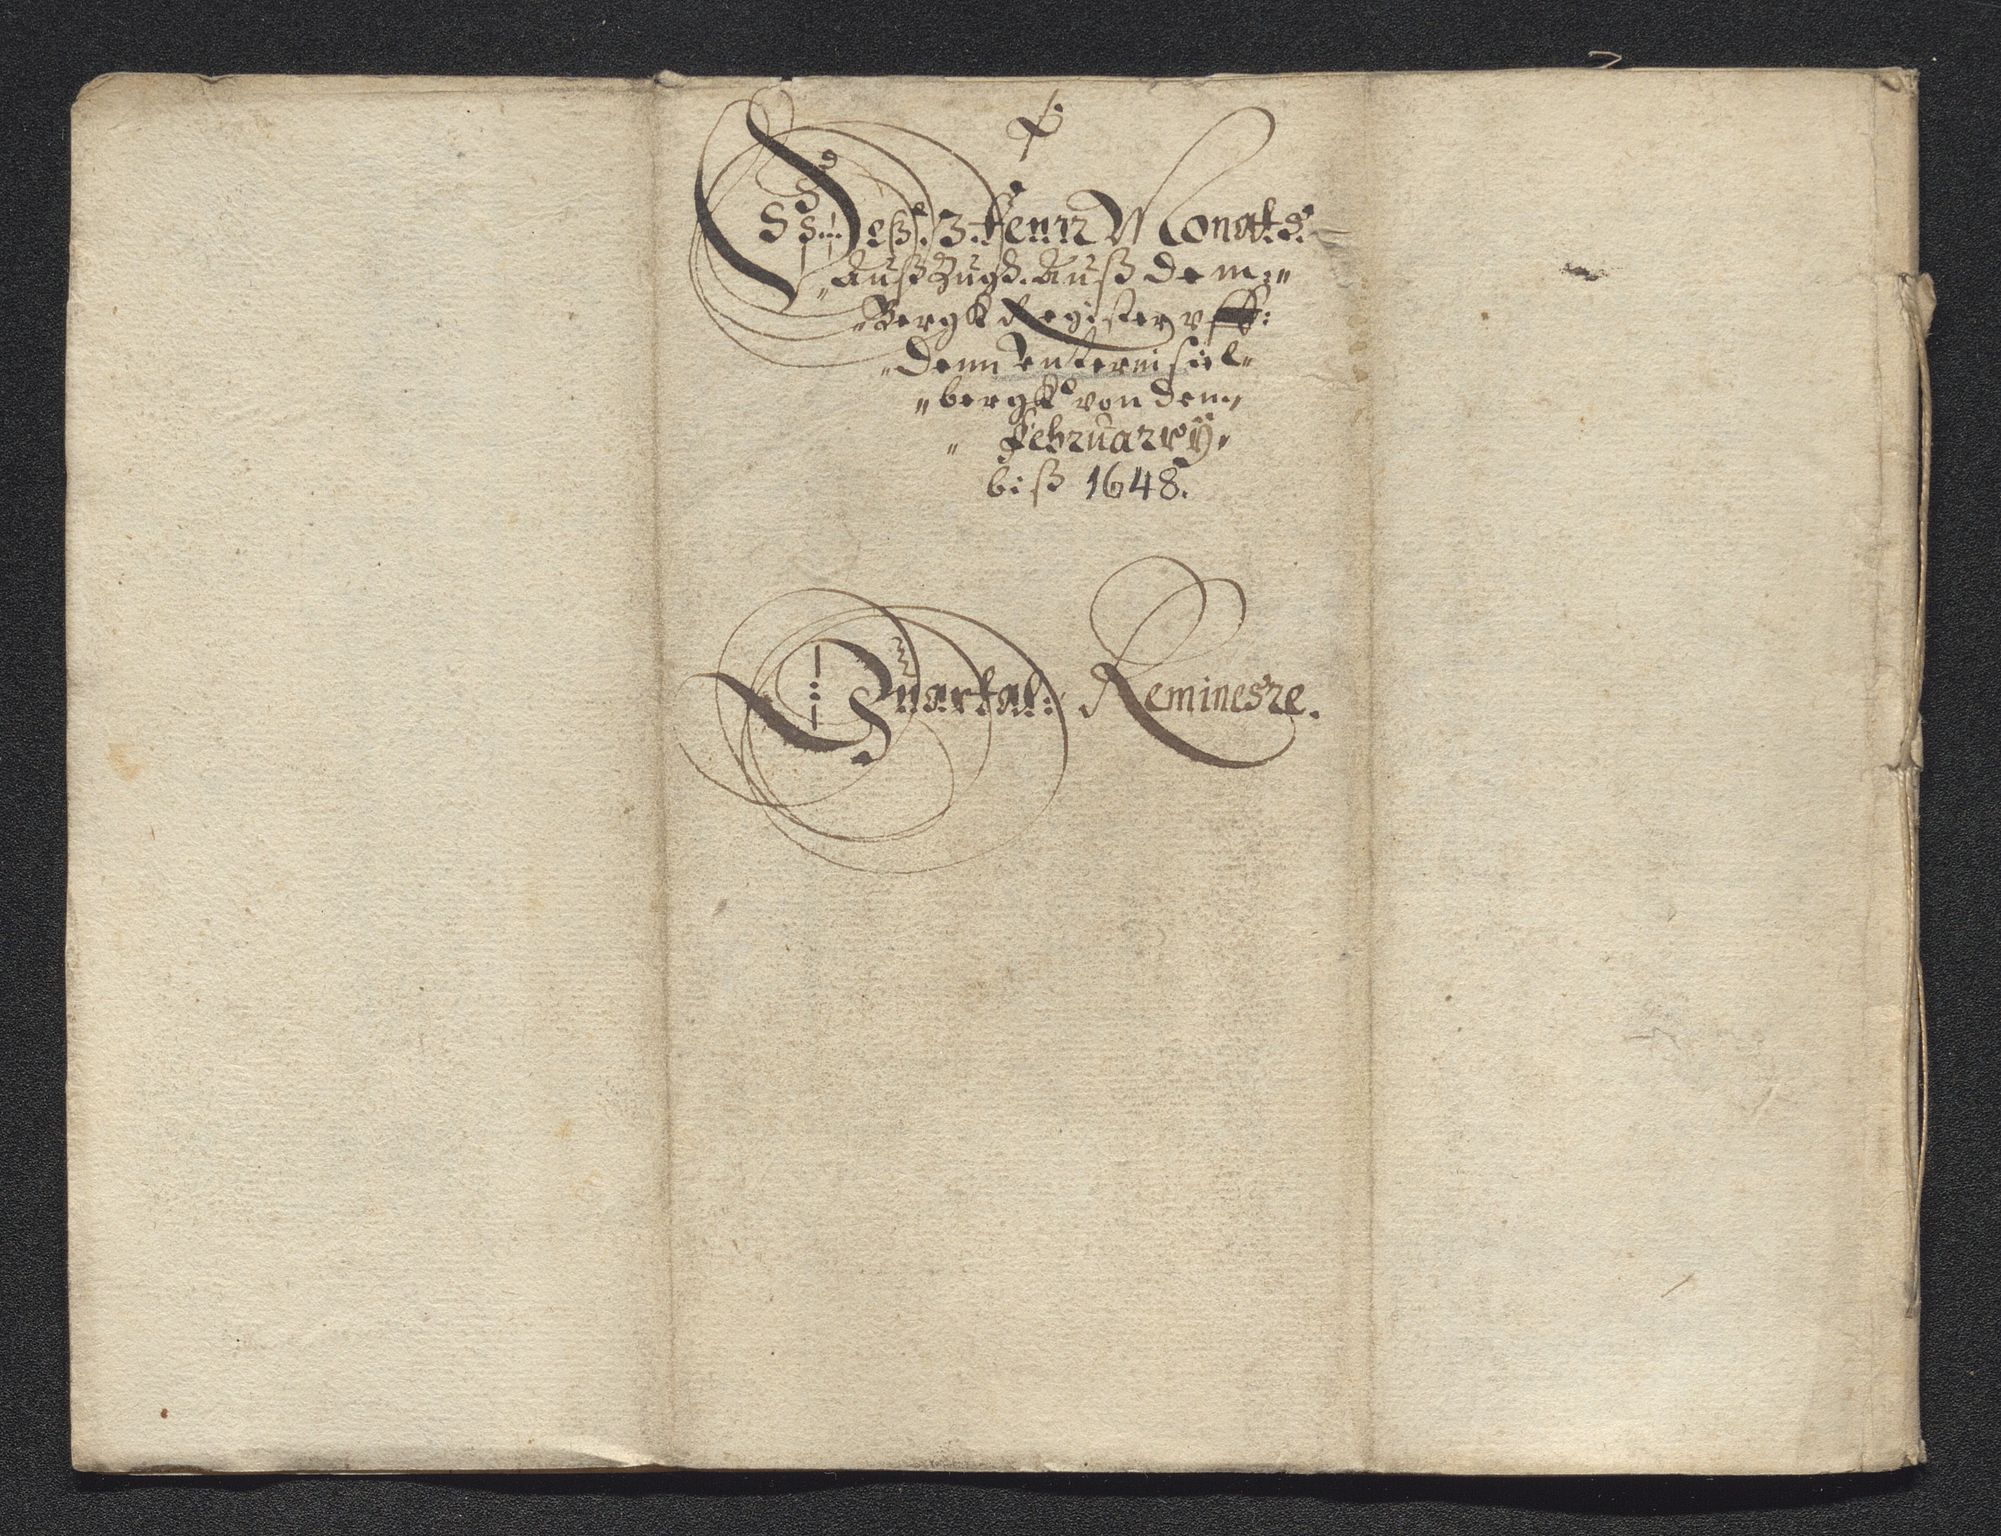 Deß. 3. tenn Monats.
Auß Zugs. Auß dem:"
"Bergk Register vff:
"Denn Unterni sül"
"bergk von dem"
" Februarÿ"
biß 1648.
Quartal: Reminesre.